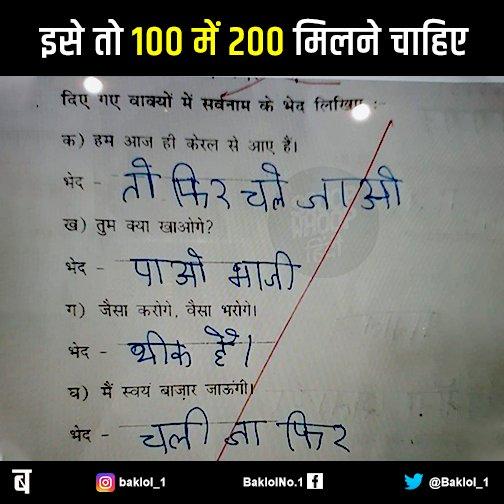 इसे तो 100 में 200 मिलने चाहिए
दिए गए वाक्यों में सर्वनाम के भेद लिखिए :-
क) हम आज ही केरल से आए हैं।
भेद - तो फिर चले जाओ
ख) तुम क्या खाओगे?
भेद - पाओ भाजी
ग) जैसा करोगे, वैसा भरोगे।
भेद - थीक है।
घ) मैं स्वयं बाज़ार जाऊंगी।
भेद - चली जा फिर
ब baklol_1 BaklolNo.1 @Baklol_1